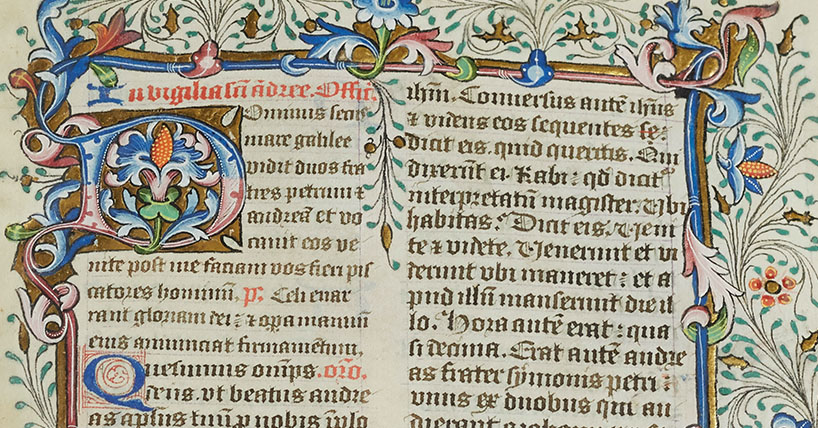 In vigilia scī ādree. Officī.
Dominus secus
mare galilee
vidit duos fra
tres petrum ⁊
andreā et vo
cauit eos ve
nite post me faciam vos fieri pis
catores hominū, p̄. Celi enar
rant gloriam dei: ⁊ opa manuū
eius annunciat firmamentum,
Quesumus om̄ps. oro.
deus. vt beatus andre
as aplūs tuū p nobis īplo
ihm̄. Conuersus autē ihūs
⁊ videns eos sequentes se:
dicit eis. quid queritis. Qui
dixerūt ei. Rabi: qd̄ dicitᵘ
interpretatū magister. vbi
habitas. Dicit eis. Veni
te ⁊ videte. Venerunt et vi
derunt vbi maneret: et a
pud illū manserunt die il
lo. Hora autē erat: qua
si decima. Erat autē andre
as frater symonis petri:
vnus ex duobus qui au
dierant a iohanne